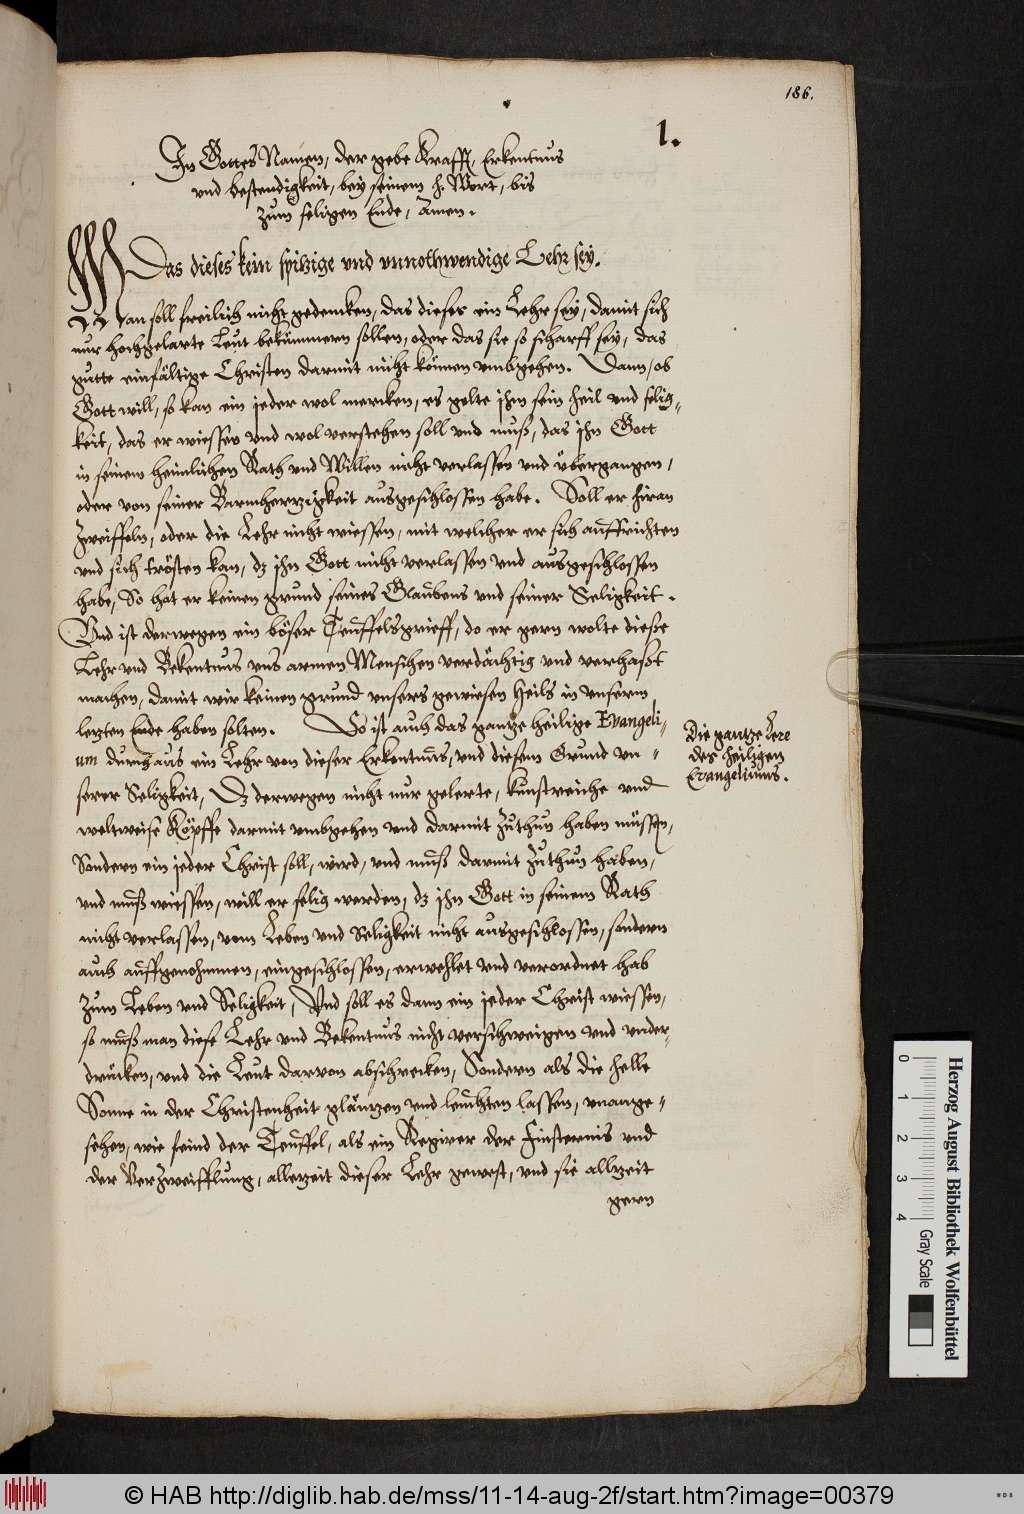 186.
1.
In Gottes Namen, der gebe Krafft, Erkentnus
und bestendigkeit, bey seinem h. Wort, bis
zum seligen Ende, Amen.
Das dieses kein spitzige und unnothwendige Lehr sey.
Man soll freilich nicht gedencken, das dieses ein Lehr sey, damit sich
nur hochgelarte Leut bekümmern sollen, oder das sie so scharff sey, das
gutte einfältige Christen darmit nicht können umbgehen. Dann, ob
Gott will, so kan ein jeder wol mercken, es gelte ihm sein heil und selig-
keit, das er wiessen und wol verstehen soll und muß, das ihn Gott
in seinem heimlichen Rath und Willen nicht verlassen und übergangen,
oder von seiner Barmhertzigkeit ausgeschlossen habe. Soll er hiran
zweiffeln, oder die Lehr nicht wiessen, mit welcher er sich auffrichten
und sich trösten kan, dz ihn Gott nicht verlassen und ausgeschlossen
habe, So hat er keinen grund seines Glaubens und seiner Seligkeit.
Und ist derwegen ein böser Teuffelsgrieff, do er gern wolte dieße
Lehr und Bekentnus uns armen Menschen verdächtig und verhaßt
machen, damit wir keinen grund unsers gewiesen Heils in unserm
letzten Ende haben solten. So ist auch das gantze heilige Evangeli-
um durchaus ein Lehr von dieser Erkentnus, und diesem Grund un-
serer Seligkeit, Dz derwegen nicht nur gelerte, kunstreiche und
weltweise Köpffe darmit umbgehen und darmit zuthun haben müssen,
Sondern ein jeder Christ soll, wird, und muß darmit zuthun haben,
und muß wiessen, will er selig werden, dz ihn Gott in seinem Rath
nicht verlassen, vom Leben und Seligkeit nicht ausgeschlossen, sondern
auch auffgenohmmen, eingeschlossen, erwehlet und verordnet hab
zum Leben und Seligkeit, Und soll es dann ein jeder Christ wiessen,
so muß man diese Lehr und Bekentnus nicht verschweigen und under-
drucken, und die Leut darvon abschrecken, Sondern als die helle
Sonne in der Christenheit gläntzen und leuchten lassen, unange-
sehen, wie feind der Teuffel, als ein Regirer der Finsternis und
der Verzweifflung, allezeit dieser Lehr gewest, und sie allzeit
gern
Die gantze Lere
des heiligen
Evangeliums.
0 1 2 3 4
Gray Scale
Herzog August Bibliothek Wolfenbüttel
© HAB http://diglib.hab.de/mss/11-14-aug-2f/start.htm?image=00379
WDB